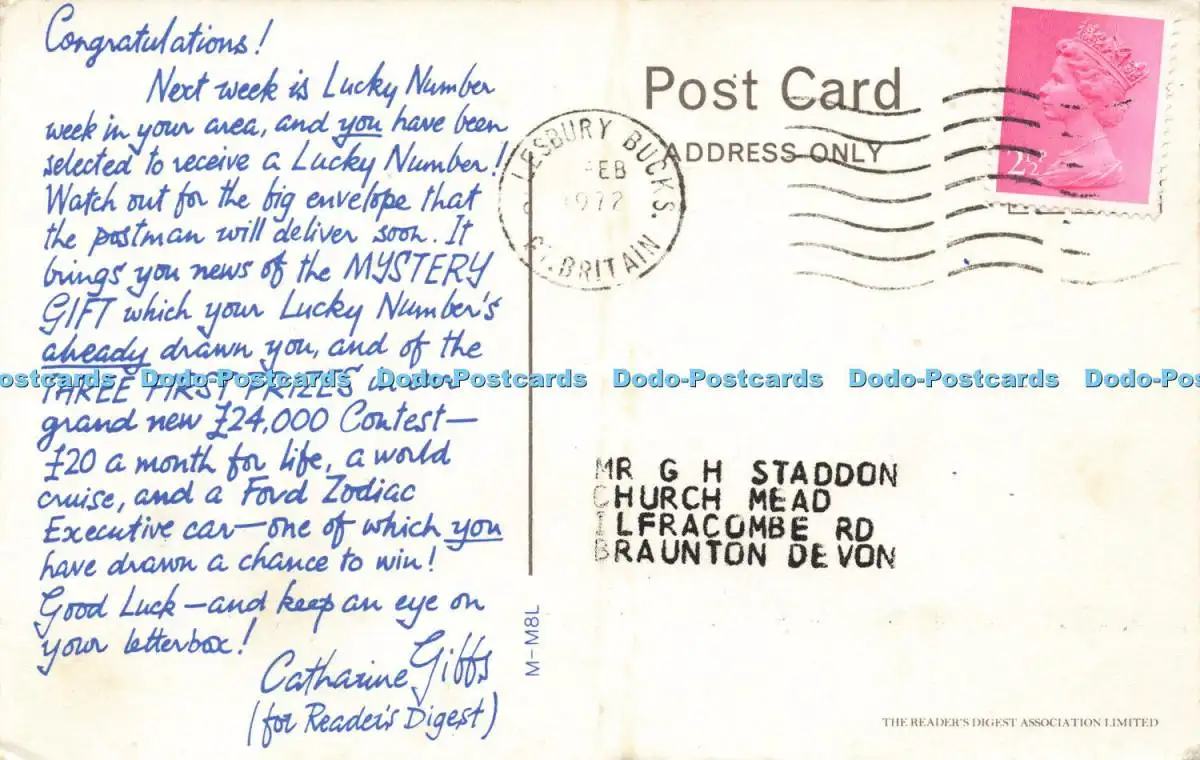 Congratulations!
Next week is Lucky Number
week in your area, and you have been
selected to receive a Lucky Number!
Watch out for the big envelope that
the postman will deliver soon. It
brings you news of the MYSTERY
GIFT which your Lucky Number's
already drawn you, and of the
THREE FIRST PRIZES in our
grand new £24,000 Contest—
£20 a month for life, a world
cruise, and a Ford Zodiac
Executive car—one of which you
have drawn a chance to win!
Good Luck—and keep an eye on
your letterbox!
Catharine Gibbs
(for Reader's Digest)
M-M8L
Post Card
ADDRESS ONLY
LESBURY BUCKS.
FEB
1972
GT. BRITAIN
2½P
Dodo-Postcards Dodo-Postcards Dodo-Postcards Dodo-Postcards Dodo-Postcards
MR G H STADDON
CHURCH MEAD
ILFRACOMBE RD
BRAUNTON DEVON
THE READER'S DIGEST ASSOCIATION LIMITED